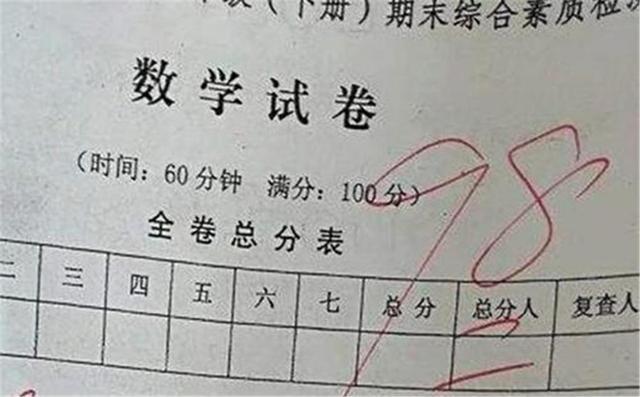 级（下册）期末综合素质检测
数学试卷
（时间：60分钟 满分：100分）
98
全卷总分表
二 三 四 五 六 七 总分 总分人 复查人